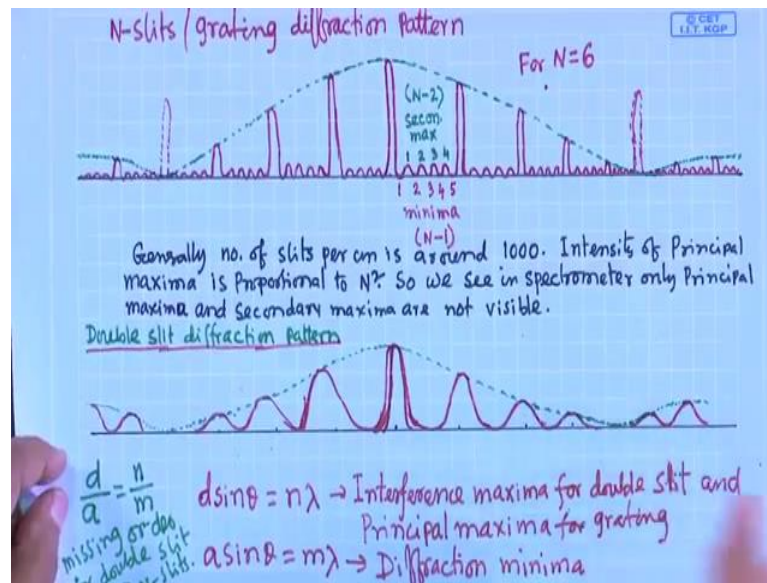 N-slits/grating diffraction Pattern
© CET
I.I.T. KGP
For N=6
(N-2)
secon.
max
1 2 3 4
1 2 3 4 5
minima
(N-1)
Generally no. of slits per cm is around 1000. Intensity of Principal
maxima is Proportional to N². So we see in spectrometer only Principal
maxima and secondary maxima are not visible.
Double slit diffraction pattern
d/a = n/m
missing order
double slit
slits.
d sinθ = nλ → Interference maxima for double slit and
Principal maxima for grating
a sinθ = mλ → Diffraction minima